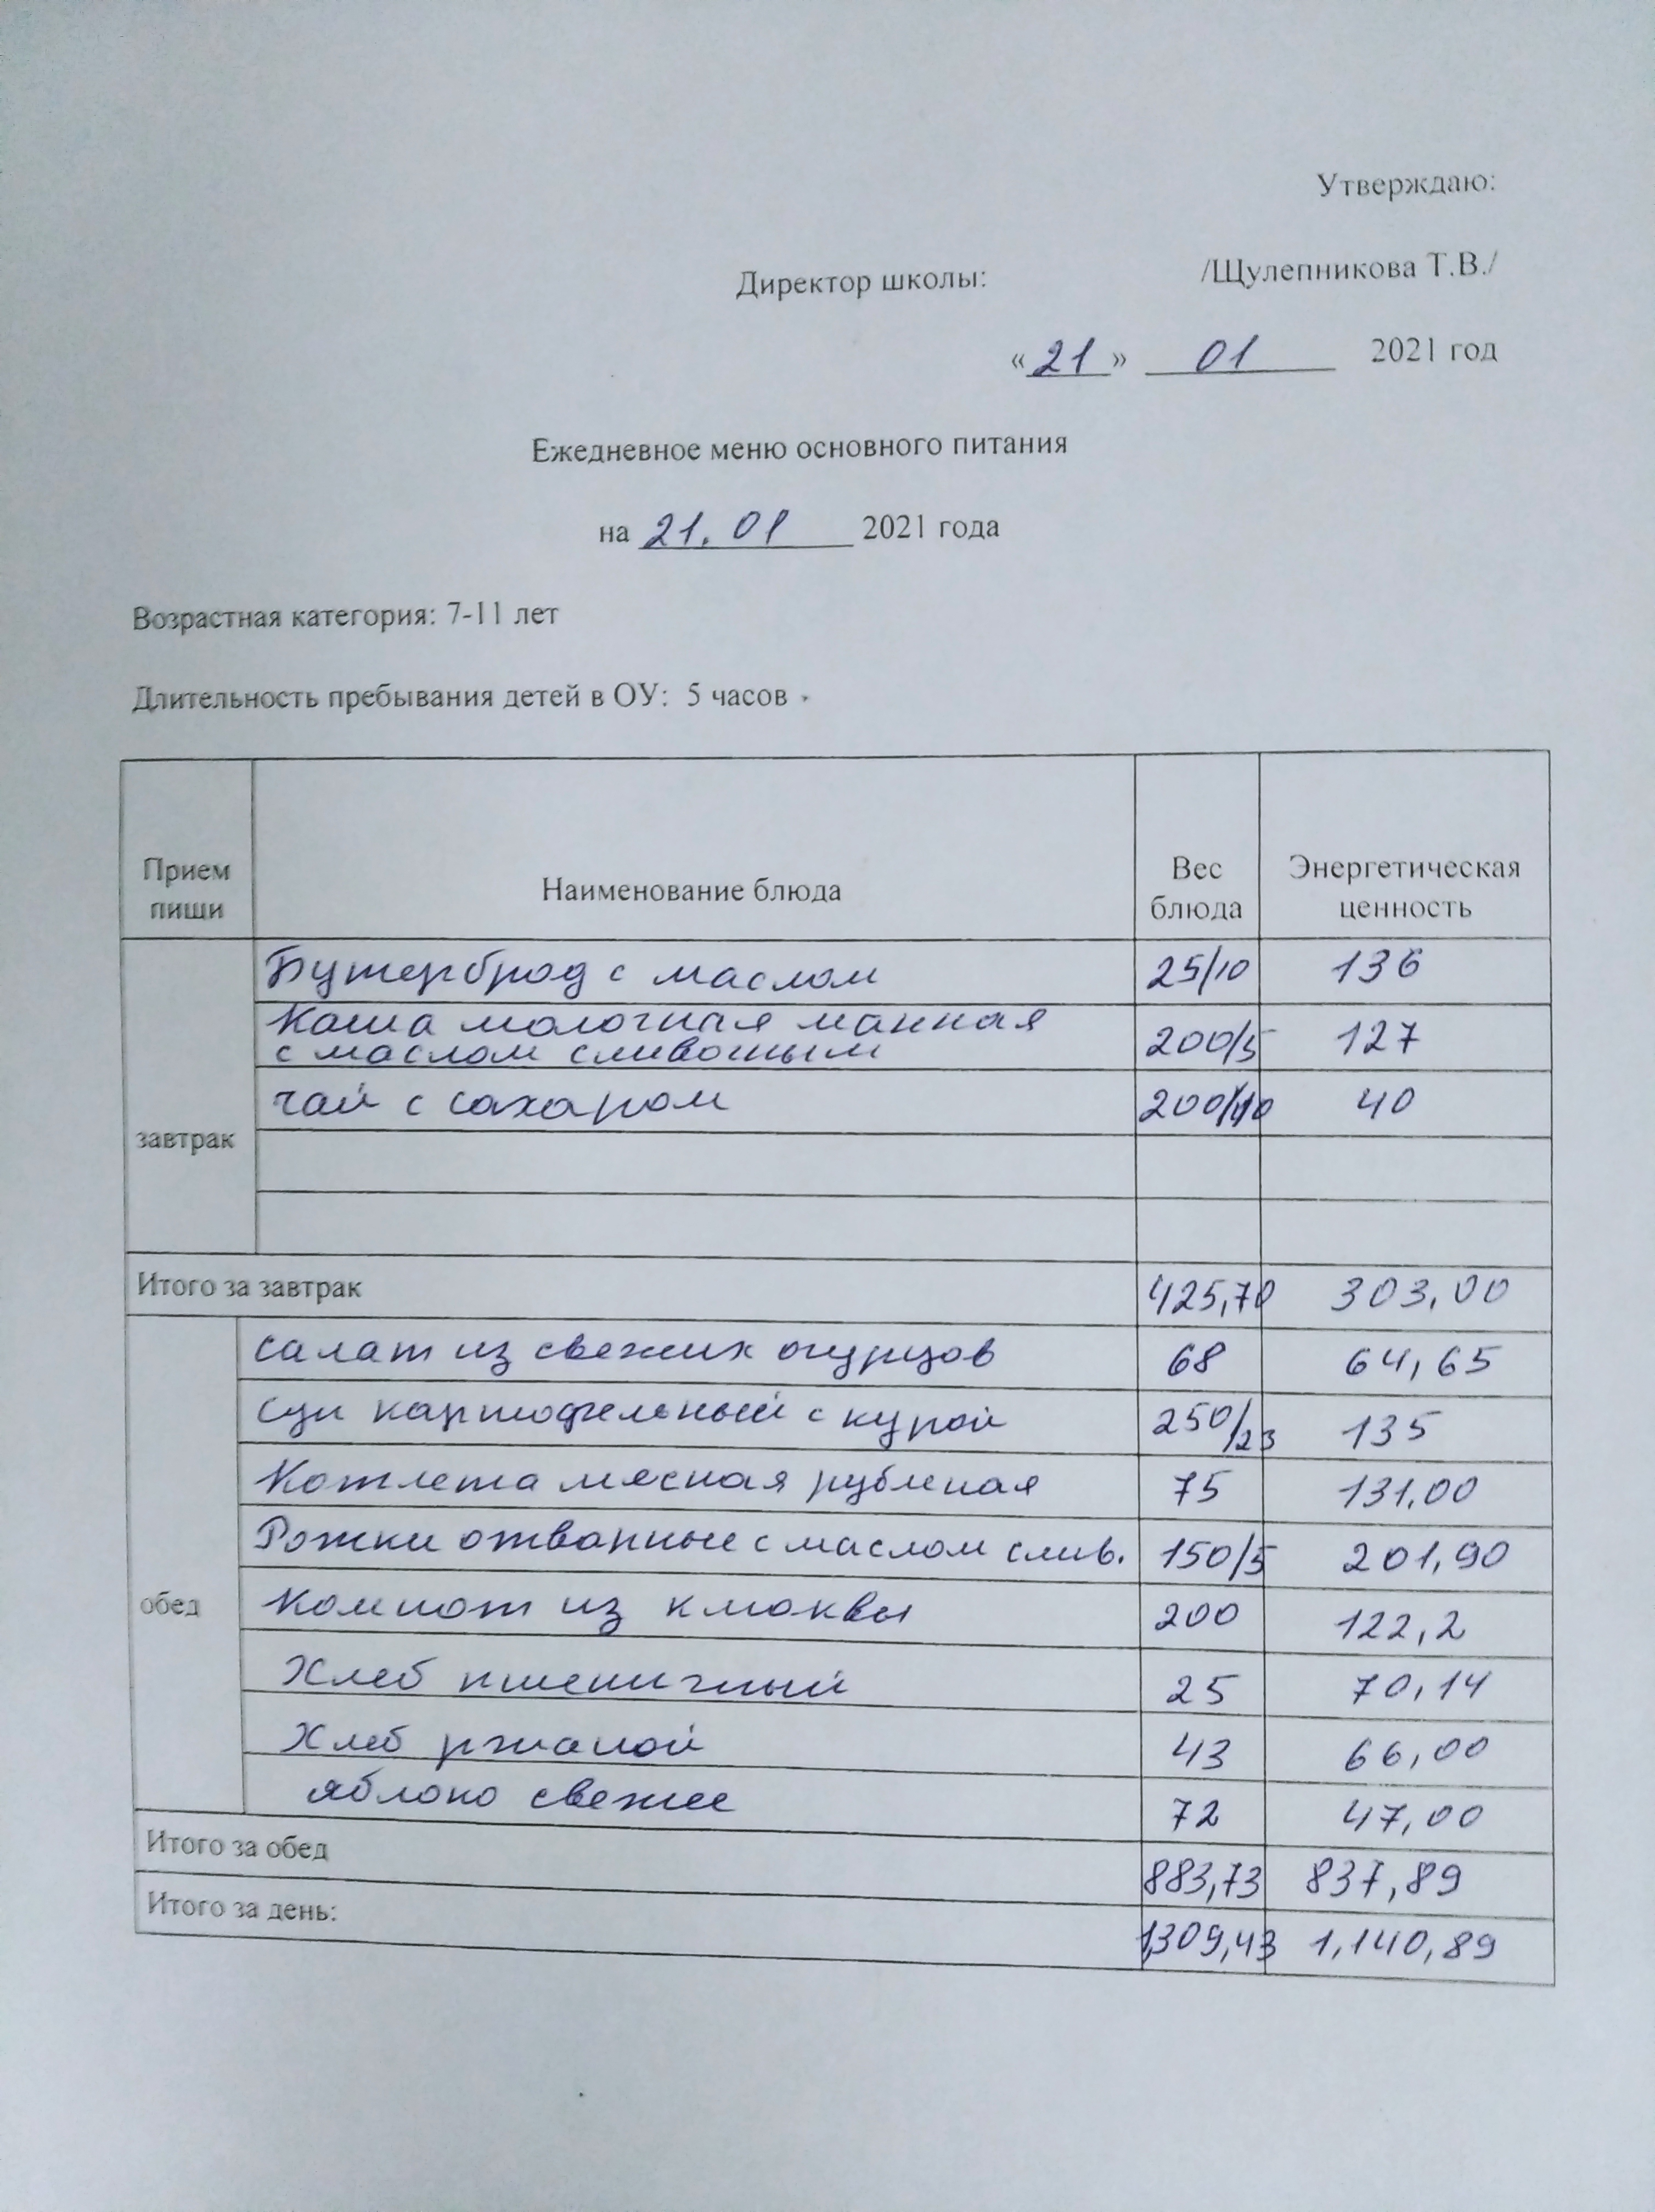 Утверждаю:
Директор школы: /Щулепникова Т.В./
«21» 01 2021 год
Ежедневное меню основного питания
на 21.01 2021 года
Возрастная категория: 7-11 лет
Длительность пребывания детей в ОУ: 5 часов
Прием пищи Наименование блюда Вес блюда Энергетическая ценность
завтрак
Бутерброд с маслом 25/10 136
Каша молочная манная
с маслом сливочным 200/5 127
чай с сахаром 200/10 40
Итого за завтрак 425,70 303,00
обед
салат из свежих огурцов 68 64,65
суп картофельный с курой 250/23 135
Котлета мясная рубленая 75 131,00
Рожки отварные с маслом слив. 150/5 201,90
Компот из клюквы 200 122,2
Хлеб пшеничный 25 70,14
Хлеб ржаной 43 66,00
яблоко свежее 72 47,00
Итого за обед 883,73 837,89
Итого за день: 1309,43 1,140,89